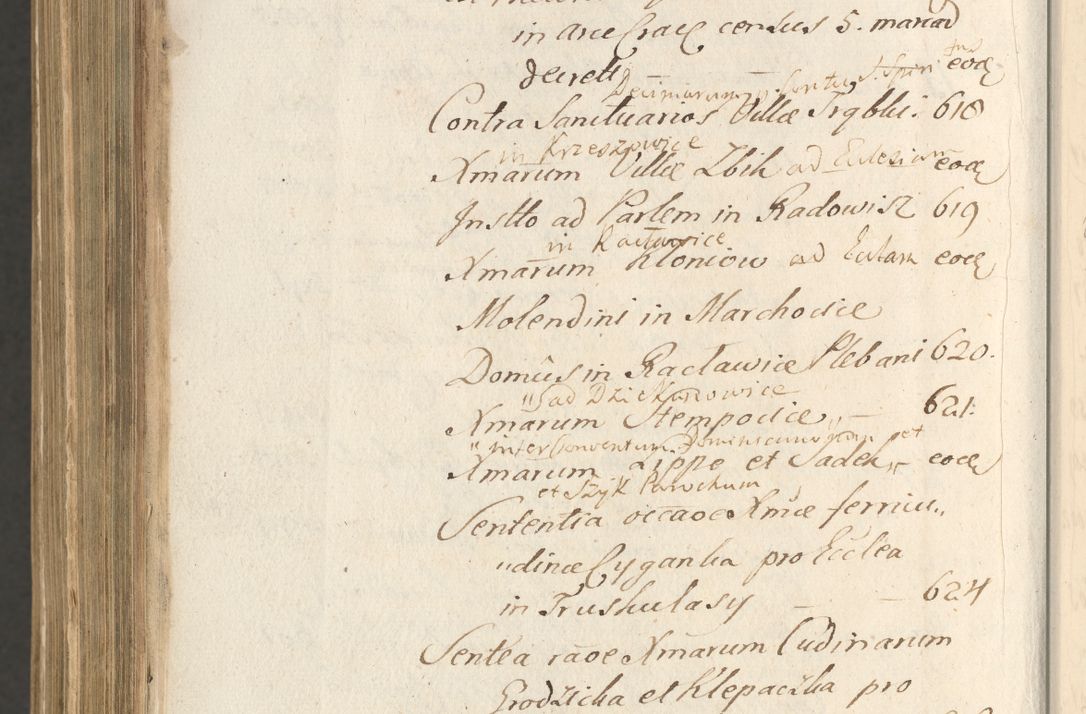 in Arce Crac census 5. marcar
decreti eod
Decimarum „ Sentt, S. Spir
Contra Sanctuarios Villæ Trąbki. 618
in Krzeszowice
Xmarum Villæ Zbik ad Eclesiam eod
Instto ad Parlem in Radowisz 619
in Racławice
Xmarum Kłoniow ad Eccłam eod
Molendini in Marchocice
Domûs in Racławice Plebani 620.
„ad Dzickanowice
Xmarum Stempocice „ 621.
„inter Conventum Dominicanorum et
Xmarum Lippe et Sadek „ eod
et Szyk Parochum
Sententia occaõe Xmæ ferricu„
„dinæ Cyganka pro Ecclea
in Truskulasy 624
Sentea raõe Xmarum Cudinarum
Grodzicka et Klepaczka pro